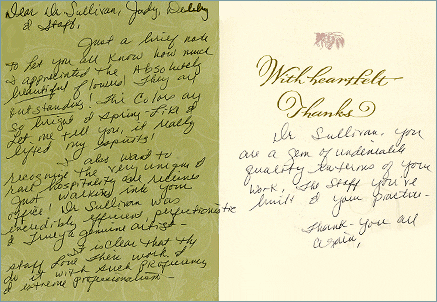 Dear Dr Sullivan, Jody, Debby
& Staff,
Just a brief note
to let you all know how much
I appreciated the Absolutely
beautiful flowers! They are
outstanding! The Colors are
so bright & Spring-like &
let me tell you, it really
lifted my spirits!
I also want to
recognize the very unique &
rare hospitality one relieves
just walking into your
office! Dr Sullivan was
incredibly efficient, perfectionistic
& truly a genuine artist-
It is clear that the
staff love there work &
do it with such proficiency
& extreme professionalism-
With heartfelt
Thanks
Dr Sullivan, you
are a gem of undeniable
quality in terms of your
work, the staff you've
built & your practice-
Thank-you all
again,